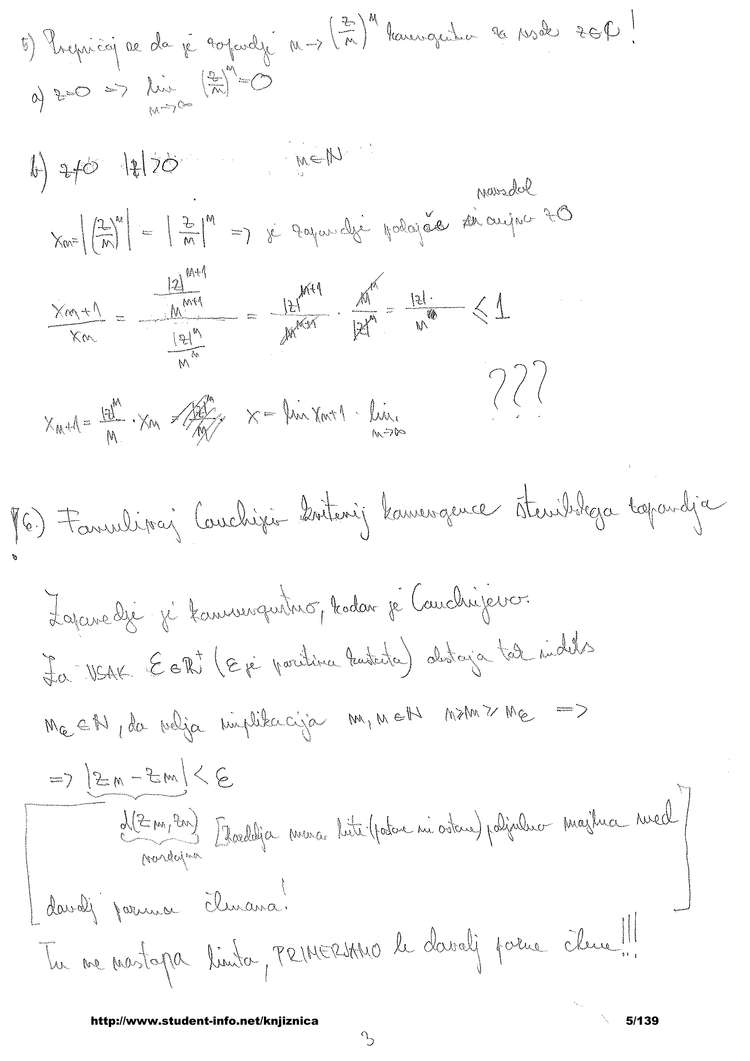 5) Prepričaj se da je zaporedje n → (z/n)^n konvergentno za vsak z∈ℂ!
a) z=0 => lim n→∞ (z/n)^n = 0
b) z≠0 |z|>0 n∈ℕ
navzdol
xn = |(z/n)^n| = |z/n|^n => je zaporedje padajoče in omejeno z 0
xn+1 / xn = (|z|^n+1 / n^n+1) / (|z|^n / n^n) = |z|^n+1 / n^n+1 · n^n / |z|^n = |z| / n ≤ 1
???
xn+1 = |z|^n / n · xn = x = lim xn+1 · lim n→∞
6.) Formuliraj Cauchijev kriterij konvergence številskega zaporedja
Zaporedje je konvergentno, kadar je Cauchijevo.
Za VSAK ε∈ℝ⁺ (ε je pozitivna konstanta) obstaja tak indeks
nε∈ℕ, da velja implikacija m, n∈ℕ n>m≥nε =>
=> |zn − zm| < ε
d(zm, zn) [Razdalja mora biti (potem ni ostane) poljubno majhna med
razdalja
dovolj poznima členoma!]
Tu ne nastopa limita, PRIMERJAMO le dovolj pozne člene!!!
http://www.student-info.net/knjiznica 5/139
3